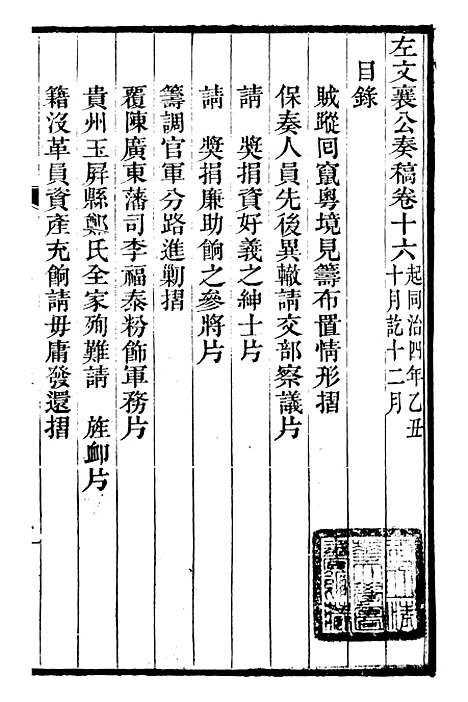 左文襄公奏稿卷十六起同治四年乙丑十月訖十二月
目錄
賊蹤回竄粵境見籌布置情形摺
保奏人員先後異轍請交部察議片
請　獎捐資好義之紳士片
請　獎捐廉助餉之參將片
籌調官軍分路進剿摺
覆陳廣東藩司李福泰粉飾軍務片
貴州玉屏縣鄭氏全家殉難請　旌卹片
籍沒革員資產充餉請毋庸發還摺